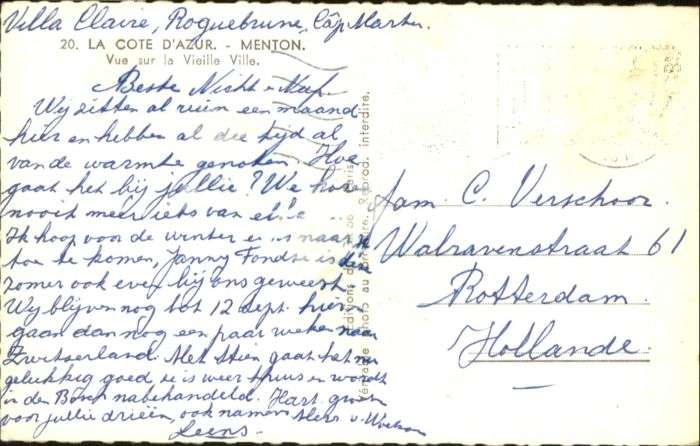 Villa Claire, Roquebrune, Cap Martin.
20. LA COTE D'AZUR. - MENTON.
Vue sur la Vieille Ville.
Beste Nicht Neef.
Wij zitten al ruim een maand
hier en hebben al die tijd al
van de warmte genoten. Hoe
gaat het bij jullie? We horen
nooit meer iets van
Ik hoop voor de winter naar
toe te komen, Janny is deze
zomer ook even bij ons geweest.
Wij blijven nog tot 12 sept. hier
gaan dan nog een paar weken naar
Zwitserland. Met Stien gaat het nu
gelukkig goed, ze is weer thuis en wordt
in den Bosch nabehandeld. Hart. groeten
voor jullie drieën, ook namens
Leens
Fam. C. Verschoor.
Walravenstraat 61
Rotterdam.
Hollande.
interdite.